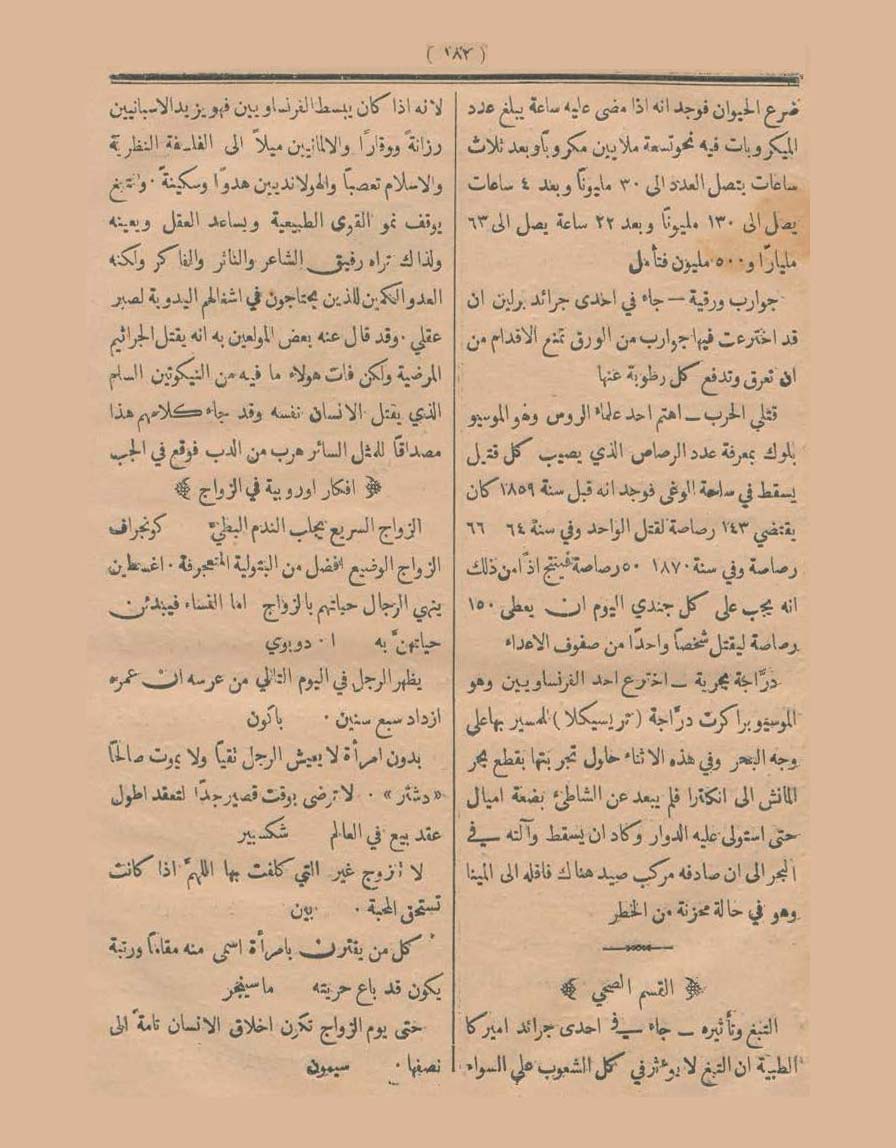 ( ١٨٢ )
ضرع الحيوان فوجد انه اذا مضى عليه ساعة يبلغ عدد
الميكروبات فيه نحو تسعة ملايين مكروباً وبعد ثلاث
ساعات يتصل العدد الى ٣٠ مليوناً وبعد ٤ ساعات
يصل الى ١٣٠ مليوناً وبعد ٢٢ ساعة يصل الى ٦٣
ملياراً و ٥٠٠ مليون فتأمل
جوارب ورقية — جاء في احدى جرائد برلين ان
قد اخترعت فيها جوارب من الورق تمنع الاقدام من
ان تعرق وتدفع كل رطوبة عنها
قتلي الحرب — اهتم احد علماء الروس وهو الموسيو
بلوك بمعرفة عدد الرصاص الذي يصيب كل قتيل
يسقط في ساحة الوغى فوجد انه قبل سنة ١٨٥٩ كان
يقتضي ١٤٣ رصاصة لقتل الواحد وفي سنة ٦٤ ٦٦
رصاصة وفي سنة ١٨٧٠ ٥٠ رصاصة فينتج اذاً من ذلك
انه يجب على كل جندي اليوم ان يعطى ١٥٠
رصاصة ليقتل شخصاً واحداً من صفوف الاعداء
درَّاجة بحرية — اخترع احد الفرنساويين وهو
الموسيو براكرت درَّاجة (تريسيكلا) لمسير بها على
وجه البحر وفي هذه الاثناء حاول تجربتها بقطع بحر
المانش الى انكلترا فلم يبعد عن الشاطئ بضعة اميال
حتى استولى عليه الدوار وكاد ان يسقط وآلته في
البحر الى ان صادفه مركب صيد هناك فاقله الى المينا
وهو في حالة محزنة من الخطر
﴿ القسم الصحي ﴾
التبغ وتأثيره — جاء في احدى جرائد اميركا
الطبية ان التبغ لا يوءثر في كل الشعوب على السواء
لانه اذا كان يبسط الفرنساويين فهو يزيد الاسبانيين
رزانة ووقاراً والالمانيين ميلاً الى الفلسفة النظرية
والاسلام تعصباً والهولانديين هدوا وسكينة . والتبغ
يوقف نمو القوى الطبيعية ويساعد العقل ويعينه
ولذلك تراه رفيق الشاعر والناثر والفاكر ولكنه
العدو الكمين للذين يحتاجون في اشغالهم اليدوية لصبر
عقلي . وقد قال عنه بعض المولعين به انه يقتل الجراثيم
المرضية ولكن فات هولاء ما فيه من النيكوتين السام
الذي يقتل الانسان نفسه وقد جاء كلامهم هذا
مصداقاً للمثل السائر هرب من الدب فوقع في الجب
﴿ افكار اوروبية في الزواج ﴾
الزواج السريع يجلب الندم البطيء كونجراف
الزواج الوضيع افضل من البتولية المتعجرفة . اغسطين
ينهي الرجال حياتهم بالزواج اما النساء فيبتدئن
حياتهنَّ به ا . دوبوي
يظهر الرجل في اليوم التالي من عرسه ان عمره
ازداد سبع سنين . باكون
بدون امرأة لا يعيش الرجل نقياً ولا يموت صالحاً
« دشتر » . لا ترضى بوقت قصير جداً لتعقد اطول
عقد بيع في العالم شكسبير
لا تزوج غير التي كلفت بها اللهمَّ اذا كانت
تستحق المحبة . بين
كل من يقترن بامرأة اسمى منه مقاماً ورتبة
يكون قد باع حريته ماسينجر
حتى يوم الزواج تكون اخلاق الانسان تامة الى
نصفها . سيمون